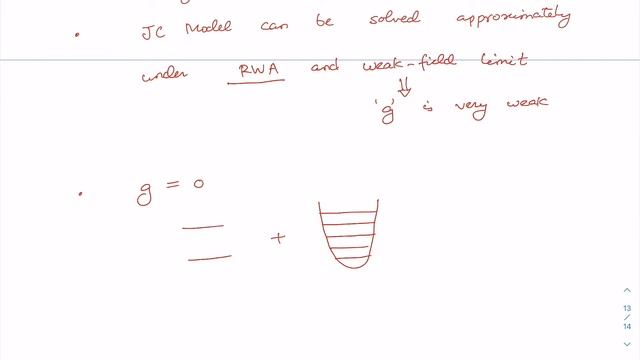 • JC Model can be solved approximately
under RWA and weak-field limit
⇓
'g' is very weak
• g = 0
+
13
/
14